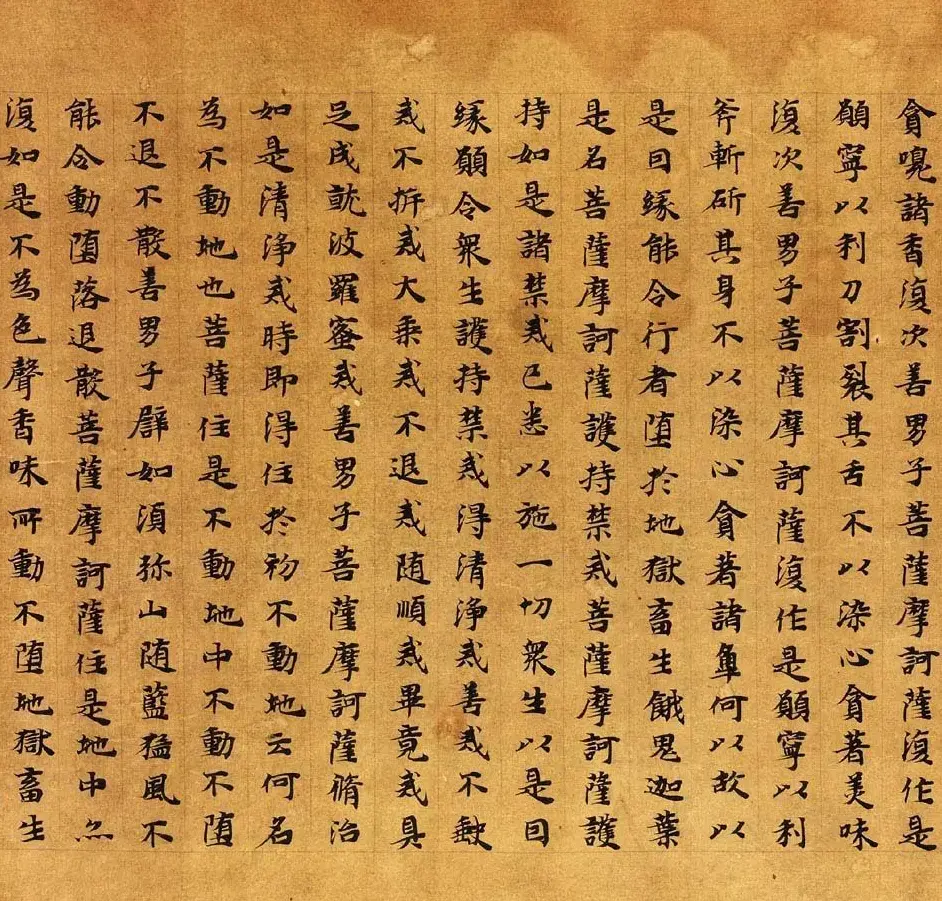 貪嗅諸香復次善男子菩薩摩訶薩復作是
願寧以利刀割裂其舌不以染心貪著美味
復次善男子菩薩摩訶薩復作是願寧以利
斧斬斫其身不以染心貪著諸觸何以故以
是因緣能令行者堕於地獄畜生餓鬼迦葉
是名菩薩摩訶薩護持禁戒菩薩摩訶薩護
持如是諸禁戒已悉以施一切眾生以是因
緣願令眾生護持禁戒得清淨戒善戒不缺
戒不析戒大乘戒不退戒随順戒畢竟戒具
足成就波羅蜜戒善男子菩薩摩訶薩脩治
如是清淨戒時即得住於初不動地云何名
為不動地也菩薩住是不動地中不動不堕
不退不散善男子譬如須弥山随藍猛風不
能令動堕落退散菩薩摩訶薩住是地中亦
復如是不為色聲香味所動不堕地獄畜生